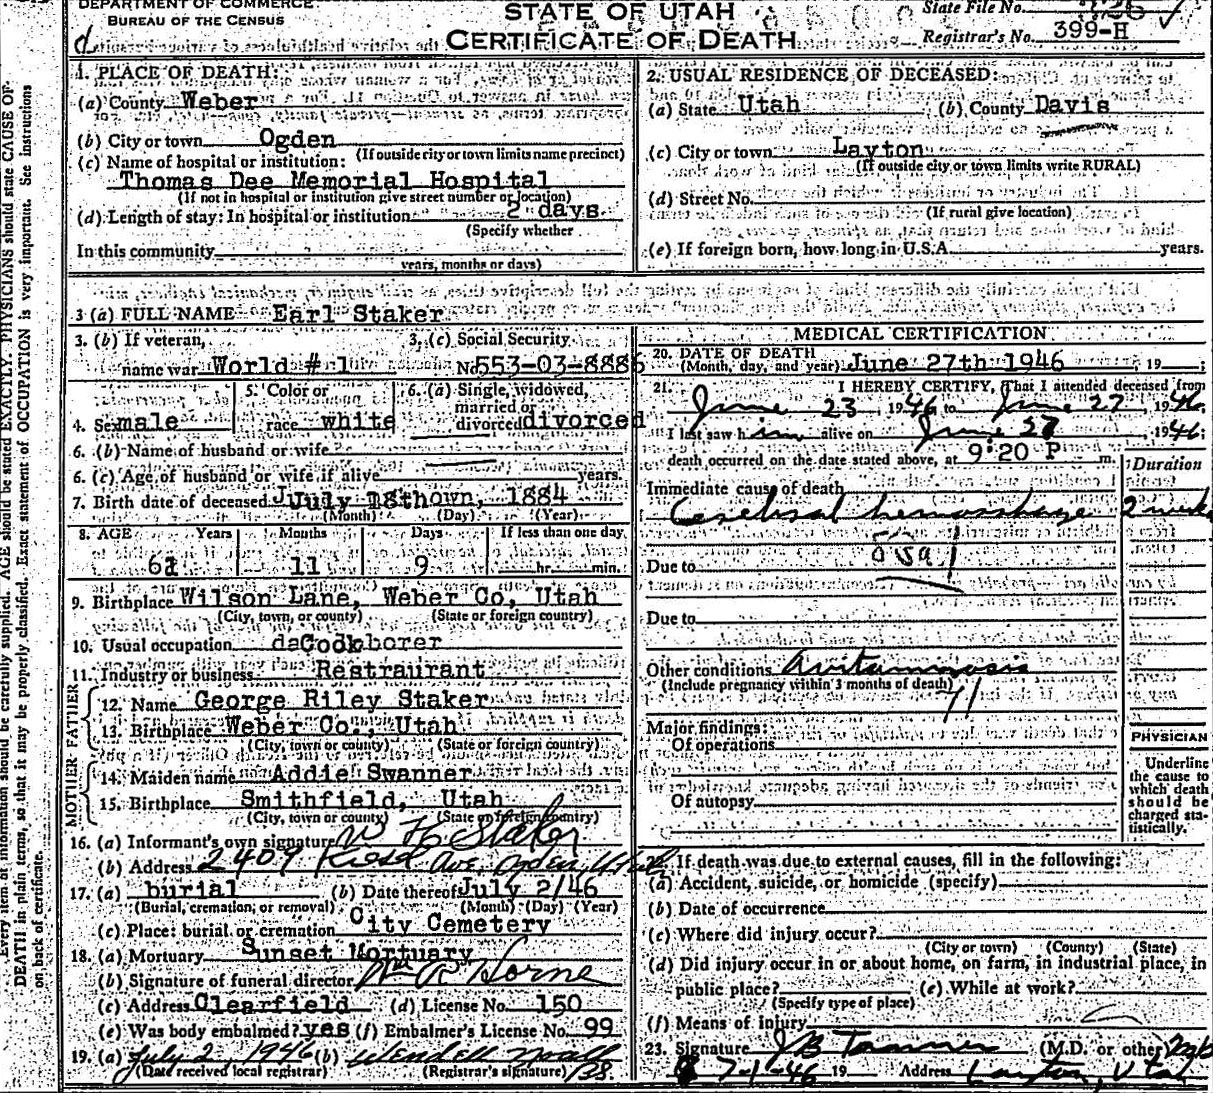 DEPARTMENT OF COMMERCE
BUREAU OF THE CENSUS
STATE OF UTAH
CERTIFICATE OF DEATH
State File No.
Registrar's No. 399-H
1. PLACE OF DEATH:
(a) County Weber
(b) City or town Ogden
(If outside city or town limits name precinct)
(c) Name of hospital or institution:
Thomas Dee Memorial Hospital
(If not in hospital or institution give street number or location)
(d) Length of stay: In hospital or institution 2 days
(Specify whether
In this community
years, months or days)
2. USUAL RESIDENCE OF DECEASED:
(a) State Utah (b) County Davis
(c) City or town Layton
(If outside city or town limits write RURAL)
(d) Street No.
(If rural give location)
(e) If foreign born, how long in U.S.A. years.
3 (a) FULL NAME Earl Staker
3. (b) If veteran,
name war World # 1
3. (c) Social Security
No 553-03-8886
4. Sex male
5. Color or
race white
6. (a) Single, widowed,
married or
divorced divorced
6. (b) Name of husband or wife
6. (c) Age of husband or wife if alive years.
7. Birth date of deceased July 18th 1884
(Month) (Day) (Year)
8. AGE Years Months Days If less than one day
61 11 9 hr. min.
9. Birthplace Wilson Lane, Weber Co, Utah
(City, town, or county) (State or foreign country)
10. Usual occupation Cook
11. Industry or business Restraurant
FATHER
12. Name George Riley Staker
13. Birthplace Weber Co., Utah
(City, town or county) (State or foreign country)
MOTHER
14. Maiden name Addie Swanner
15. Birthplace Smithfield, Utah
(City, town or county) (State or foreign country)
16. (a) Informant's own signature W H Staker
(b) Address 2409 Kiesel Ave, Ogden, Utah
17. (a) burial (b) Date thereof July 2/46
(Burial, cremation, or removal) (Month) (Day) (Year)
(c) Place: burial or cremation City Cemetery
18. (a) Mortuary Sunset Mortuary
(b) Signature of funeral director Wm R Horne
(c) Address Clearfield (d) License No. 150
(e) Was body embalmed? yes (f) Embalmer's License No. 99
19. (a) July 2, 1946 (b) Wendell Noall
(Date received local registrar) (Registrar's signature)
MEDICAL CERTIFICATION
20. DATE OF DEATH
(Month, day, and year) June 27th 1946, 19 ;
21. I HEREBY CERTIFY, That I attended deceased from
June 23, 1946 to June 27, 1946.
I last saw him alive on June 27, 1946;
death occurred on the date stated above, at 9:20 P m.
Duration
Immediate cause of death
Cerebral hemorrhage 2 weeks
Due to
Due to
Other conditions Avitaminosis
(Include pregnancy within 3 months of death)
Major findings:
Of operations
Of autopsy
PHYSICIAN
Underline
the cause to
which death
should be
charged sta-
tistically.
22. If death was due to external causes, fill in the following:
(a) Accident, suicide, or homicide (specify)
(b) Date of occurrence
(c) Where did injury occur?
(City or town) (County) (State)
(d) Did injury occur in or about home, on farm, in industrial place, in
public place? (e) While at work?
(Specify type of place)
(f) Means of injury
23. Signature J B Tanner (M.D. or other)
7-1-46 19 Address Layton, Utah
Every item of information should be carefully supplied. AGE should be stated EXACTLY. PHYSICIANS should state CAUSE OF
DEATH in plain terms, so that it may be properly classified. Exact statement of OCCUPATION is very important. See instructions
on back of certificate.